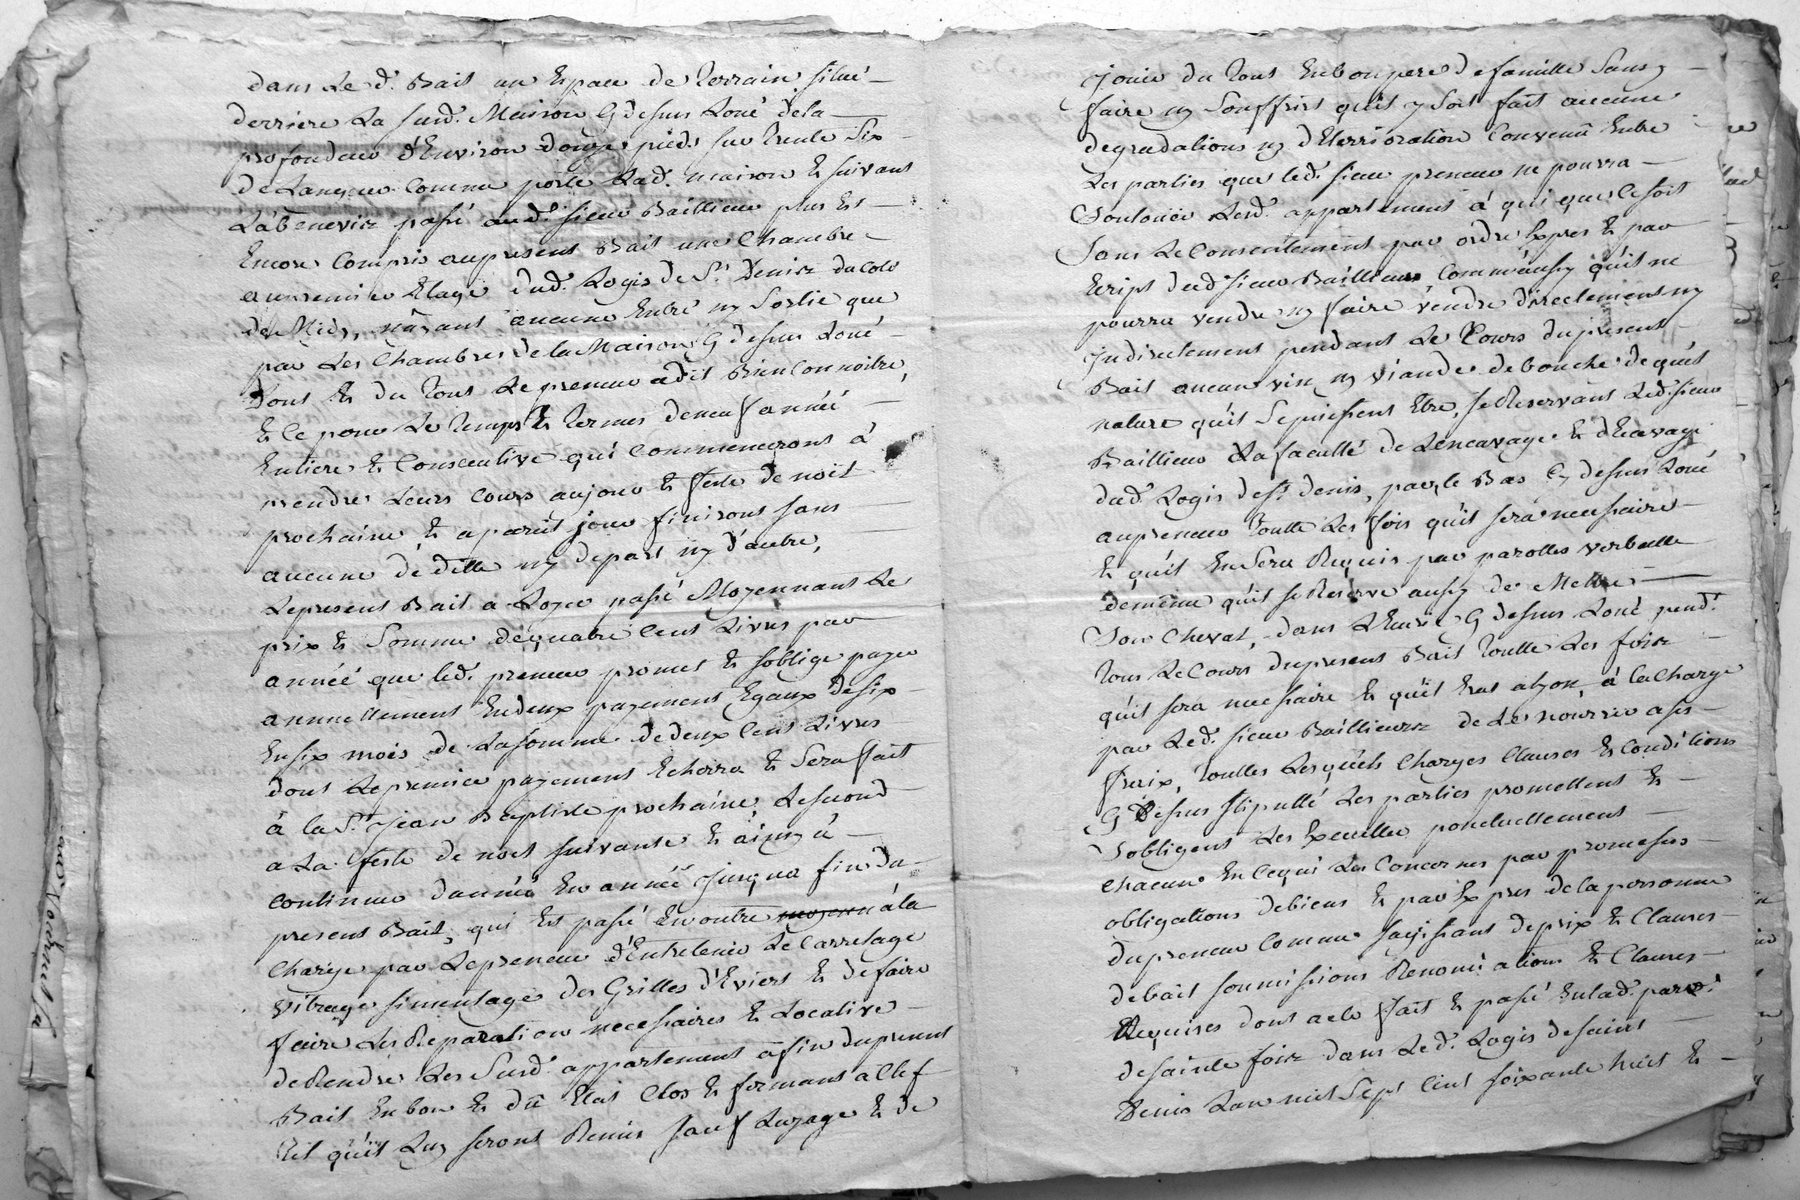 dans Le d. Bail un Espace de Terrain situé
derriere La susd. Maison Cy dessus Loué dela
profondeur d'Environ douze pieds sur trente six
de Largeur comme porte Lad. maison Et suivant
L'abenevix passé aud. sieur Baillieur plus Est
Encore Compris aupresent Bail une Chambre
aupremier Etage dud. Logis de St. Denis du Coté
de Midy, n'ayant aucune Entré ny Sortie que
par Les Chambres de la Maison Cy dessus Loué
Dont Et du tout Le preneur a dit Bien Connoitre,
Et Ce pour Le temps Et termes de neuf année
Entiere Et Consecutive qui Commenceront à
prendre Leurs Cours aujour Et feste de noël
prochaine Et a pareil jour finiront sans
aucune déditte ny depart ny d'autre,
Le present Bail a Loyer passé Moyennant Le
prix Et Somme de quatre Cent Livres par
année que led. preneur promet Et s'oblige payer
annuellement En deux payement Egaux de six
En six mois de La somme de deux Cent Livres
dont Le premier payement Echerra Et Sera fait
à la St. Jean Baptiste prochaine, Le second
a La feste de noël suivante Et ainsy à
continuer d'année En année jusqua fin du
present Bail, qui Est passé En outre à la
Charge par Le preneur d'Entretenir Le Carrelage
Vitrage simentage des Grilles d'Eviers Et de faire
faire Les Reparation necessaires Et Locative
de Rendre Les Susd. appartement à fin du present
Bail En bon Et dû Etat Clos Et fermant a Clef
tel qu'il Luy seront Remis sauf Luzage Et de
Jouir du tout En bon pere de famille Sans y
faire ny Souffrir qu'il y Soit fait aucune
degradations ny déterrioration Convenu Entre
Les parties que led. sieur preneur ne pourra
Soulouer Lesd. appartement à qui que Ce soit
Sans Le Consentement par ordre Expres Et par
Ecript dud. sieur Baillieur Comme aussy qu'il ne
pourra vendre ny faire vendre directement ny
jndirectement pendant Le Cours du present
Bail aucun vin ny viande de bouche de quel
nature qu'il Se puissent Etre, se Reservant Led. sieur
Baillieur La faculté de L'encavage Et d'Ecavage
dud. Logis de St. denis, par le Bas Cy dessus Loué
aupreneur toutte Les fois qu'il sera necessaire
Et qu'il En Sera Requis par parolles verballe
de même qu'il se Reserve aussy de Mettre
Son Cheval, dans L'Ecurie Cy dessus Loué pend.
tous Le Cours du present Bail toutte Les fois
qu'il sera necessaire Et qu'il a la Charge
par Led. sieur Baillieur de Le nourrir a ses
fraix, touttes Lesquels Charges Clauses Et Conditions
Cy Dessus stipullé Les parties promettent Et
S'obligent Les Executter ponctuellement
Chacune En Ce qui Les Concernes par promesses
obligations de biens Et par Expres de la personne
du preneur Comme de prix Et Clauses
de bail soumissions Renonciations Et Clauses
Requises dont acte fait Et passé En lad. paroi.
de sainte foix dans Le d. Logis de saint
Denis L'an mil Sept Cent soixante huit Et